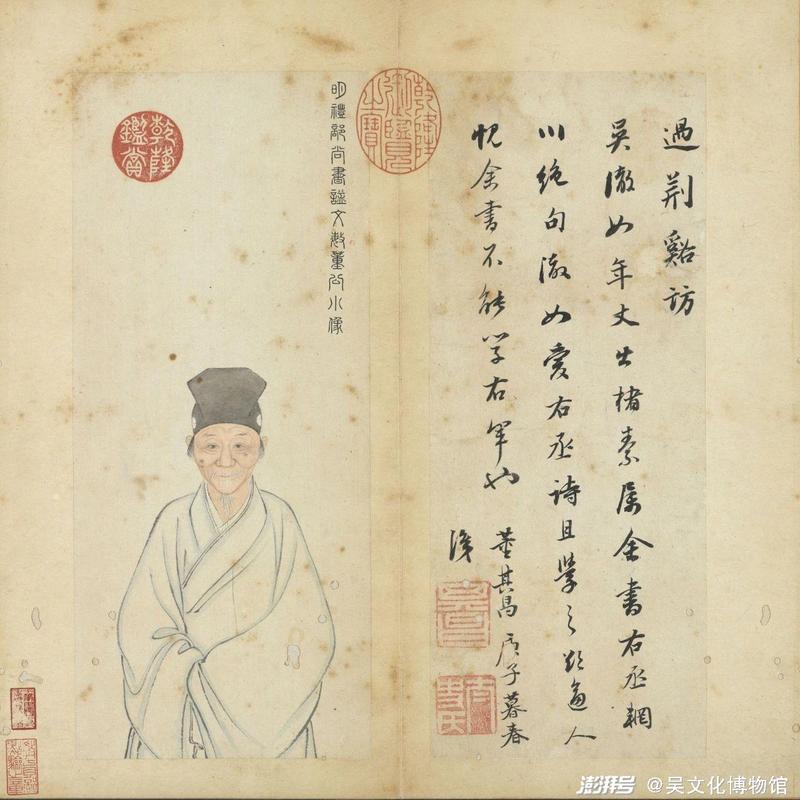 過荊谿訪
吳澈如年丈出楮素屬余書右丞輞
川絕句澈如愛右丞詩且學之欲逼人
愧余書不能學右軍也
董其昌庚子暮春
識
乾隆御覽之寶
明禮部尚書諡文敏董公小像
乾隆鑑賞
澎湃号 @吴文化博物馆